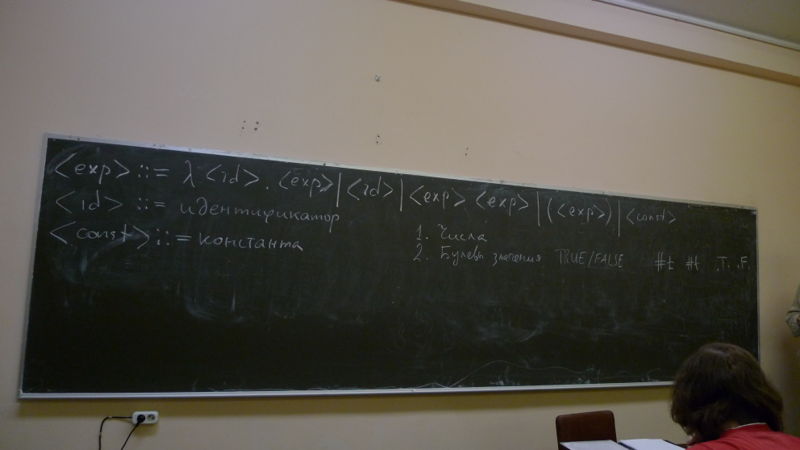 <exp> ::= λ <id> . <exp> | <id> | <exp> <exp> | (<exp>) | <const>
<id> ::= идентификатор
<const> ::= константа
1. Числа
2. Булевы значения TRUE/FALSE #t #f .T. .F.